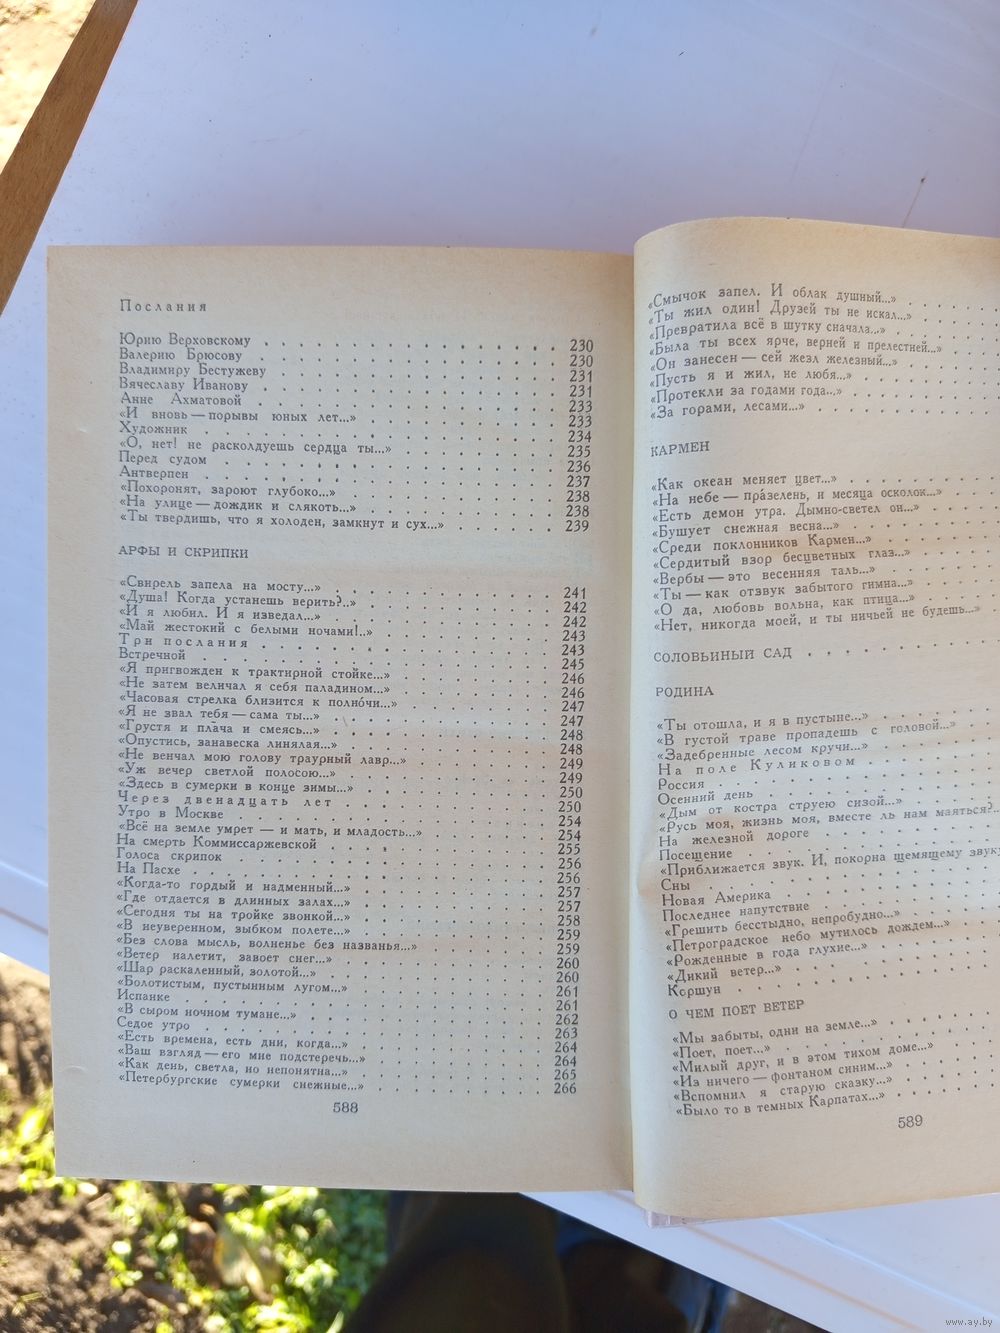 Послания
Юрию Верховскому . . . 230
Валерию Брюсову . . . 230
Владимиру Бестужеву . . . 231
Вячеславу Иванову . . . 231
Анне Ахматовой . . . 233
«И вновь — порывы юных лет...» . . . 233
Художник . . . 234
«О, нет! не расколдуешь сердца ты...» . . . 235
Перед судом . . . 236
Антверпен . . . 237
«Похоронят, зароют глубоко...» . . . 238
«На улице — дождик и слякоть...» . . . 238
«Ты твердишь, что я холоден, замкнут и сух...» . . . 239
АРФЫ И СКРИПКИ
«Свирель запела на мосту...» . . . 241
«Душа! Когда устанешь верить?..» . . . 242
«И я любил. И я изведал...» . . . 242
«Май жестокий с белыми ночами!..» . . . 243
Три послания . . . 243
Встречной . . . 245
«Я пригвожден к трактирной стойке...» . . . 246
«Не затем величал я себя паладином...» . . . 246
«Часовая стрелка близится к полно́чи...» . . . 247
«Я не звал тебя — сама ты...» . . . 247
«Грустя и пла́ча и смеясь...» . . . 248
«Опустись, занавеска линялая...» . . . 248
«Не венчал мою голову траурный лавр...» . . . 249
«Уж вечер светлой полосою...» . . . 249
«Здесь в сумерки в конце зимы...» . . . 250
Через двенадцать лет . . . 250
Утро в Москве . . . 254
«Всё на земле умрет — и мать, и младость...» . . . 254
На смерть Коммиссаржевской . . . 255
Голоса скрипок . . . 256
На Пасхе . . . 256
«Когда-то гордый и надменный...» . . . 257
«Где отдается в длинных залах...» . . . 257
«Сегодня ты на тройке звонкой...» . . . 258
«В неуверенном, зыбком полете...» . . . 259
«Без слова мысль, волненье без названья...» . . . 259
«Ветер налетит, завоет снег...» . . . 260
«Шар раскаленный, золотой...» . . . 260
«Болотистым, пустынным лугом...» . . . 261
Испанке . . . 261
«В сыром ночном тумане...» . . . 262
Седое утро . . . 263
«Есть времена, есть дни, когда...» . . . 264
«Ваш взгляд — его мне подстеречь...» . . . 264
«Как день, светла, но непонятна...» . . . 265
«Петербургские сумерки снежные...» . . . 266
588
«Смычок запел. И облак душный...» . . .
«Ты жил один! Друзей ты не искал...» . . .
«Превратила всё в шутку сначала...» . . .
«Была ты всех ярче, верней и прелестней...» . . .
«Он занесен — сей жезл железный...» . . .
«Пусть я и жил, не любя...» . . .
«Протекли за годами года...» . . .
«За горами, лесами...» . . .
КАРМЕН
«Как океан меняет цвет...» . . .
«На небе — пра́зелень, и месяца осколок...» . . .
«Есть демон утра. Дымно-светел он...» . . .
«Бушует снежная весна...» . . .
«Среди поклонников Кармен...» . . .
«Сердитый взор бесцветных глаз...» . . .
«Вербы — это весенняя таль...» . . .
«Ты — как отзвук забытого гимна...» . . .
«О да, любовь вольна, как птица...» . . .
«Нет, никогда моей, и ты ничьей не будешь...» . . .
СОЛОВЬИНЫЙ САД . . .
РОДИНА
«Ты отошла, и я в пустыне...» . . .
«В густой траве пропадешь с головой...» . . .
«Задебренные лесом кручи...» . . .
На поле Куликовом . . .
Россия . . .
Осенний день . . .
«Дым от костра струею сизой...» . . .
«Русь моя, жизнь моя, вместе ль нам маяться?.
На железной дороге . . .
Посещение . . .
«Приближается звук. И, покорна щемящему звуку
Сны . . .
Новая Америка . . .
Последнее напутствие . . .
«Грешить бесстыдно, непробудно...» . . .
«Петроградское небо мутилось дождем...» . . .
«Рожденные в года глухие...» . . .
«Дикий ветер...» . . .
Коршун . . .
О ЧЕМ ПОЕТ ВЕТЕР
«Мы забыты, одни на земле...» . . .
«Поет, поет...» . . .
«Милый друг, и в этом тихом доме...» . . .
«Из ничего — фонтаном синим...» . . .
«Вспомнил я старую сказку...» . . .
«Было то в темных Карпатах...» . . .
589
www.ay.by